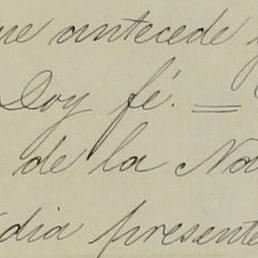 ue antecede y
Doy fé. =
de la No
dia presente